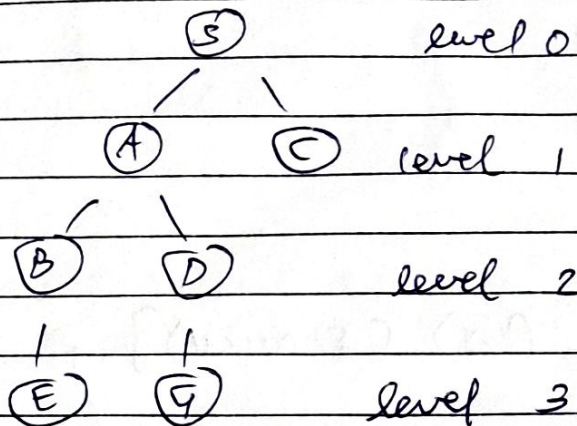 S level 0
A C level 1
B D level 2
E G level 3